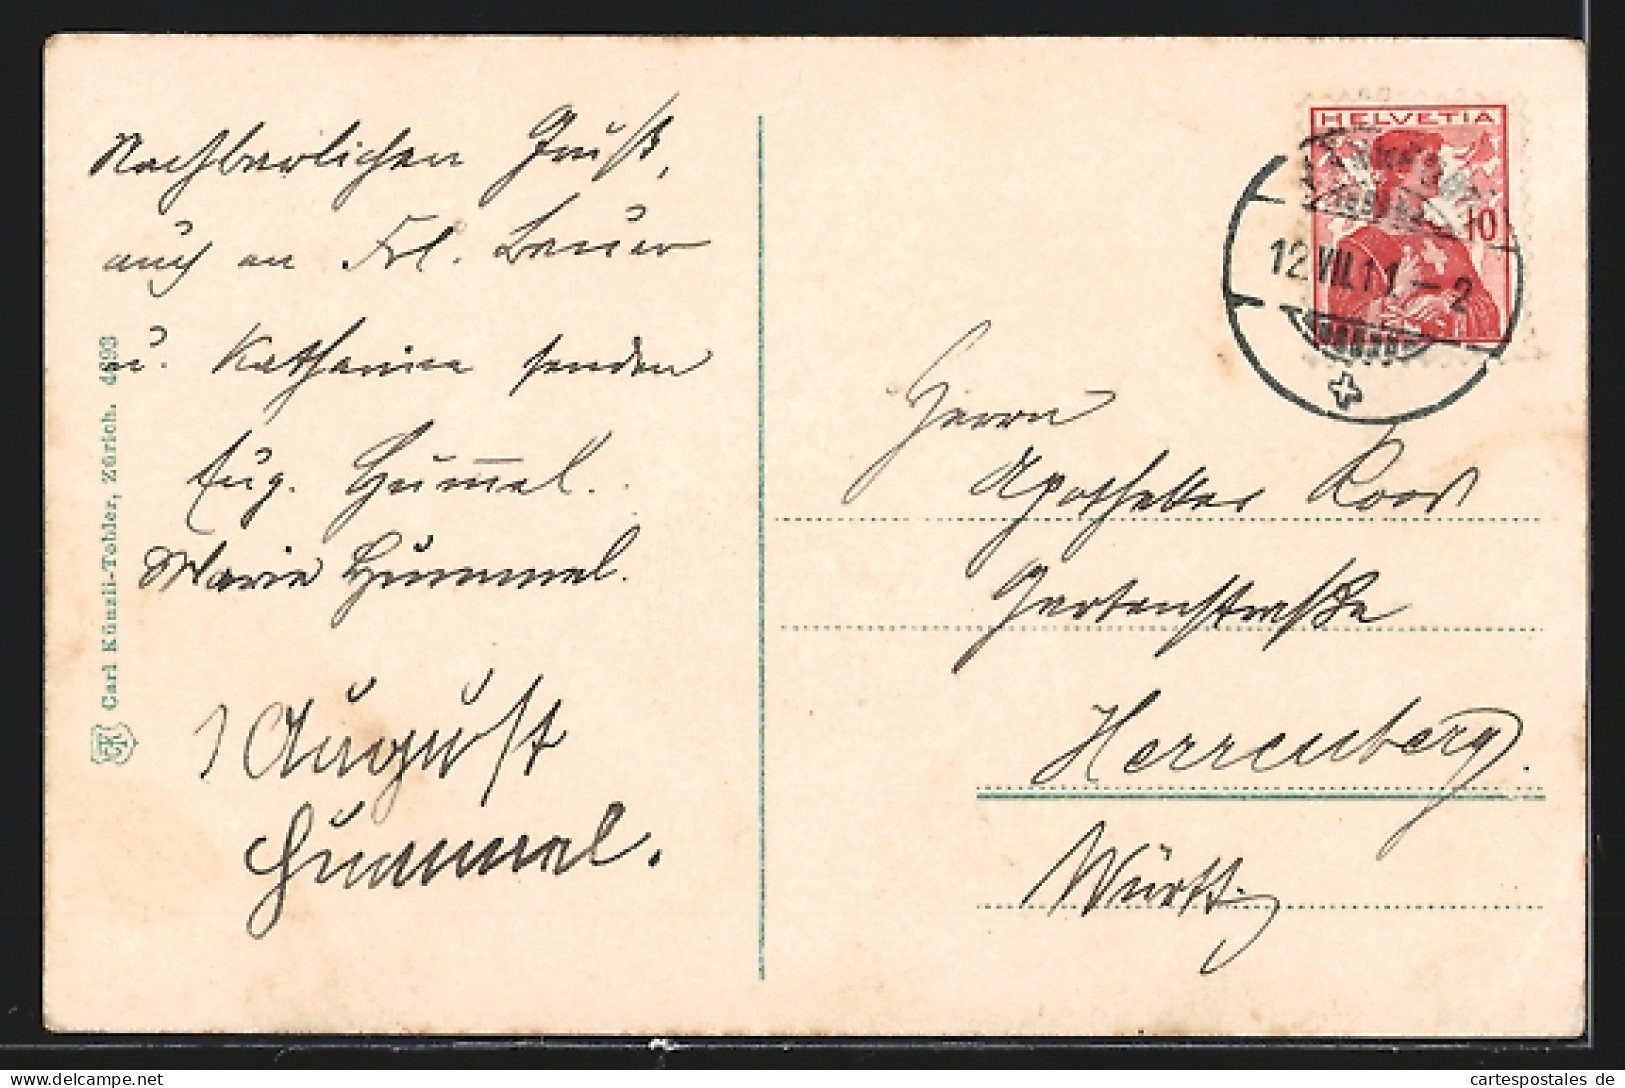 Nachbarlichen Gruß,
auch an Frl. Bauer
u. Katharine senden
Eug. Hummel.
Marie Hummel.
August
Hummel.
Carl Künzli-Tobler, Zürich. 4693
HELVETIA
10
12.VII.11.–2
Herrn
Apotheker
Gartenstraße
Herrenberg.
Württ.
cartespostales de